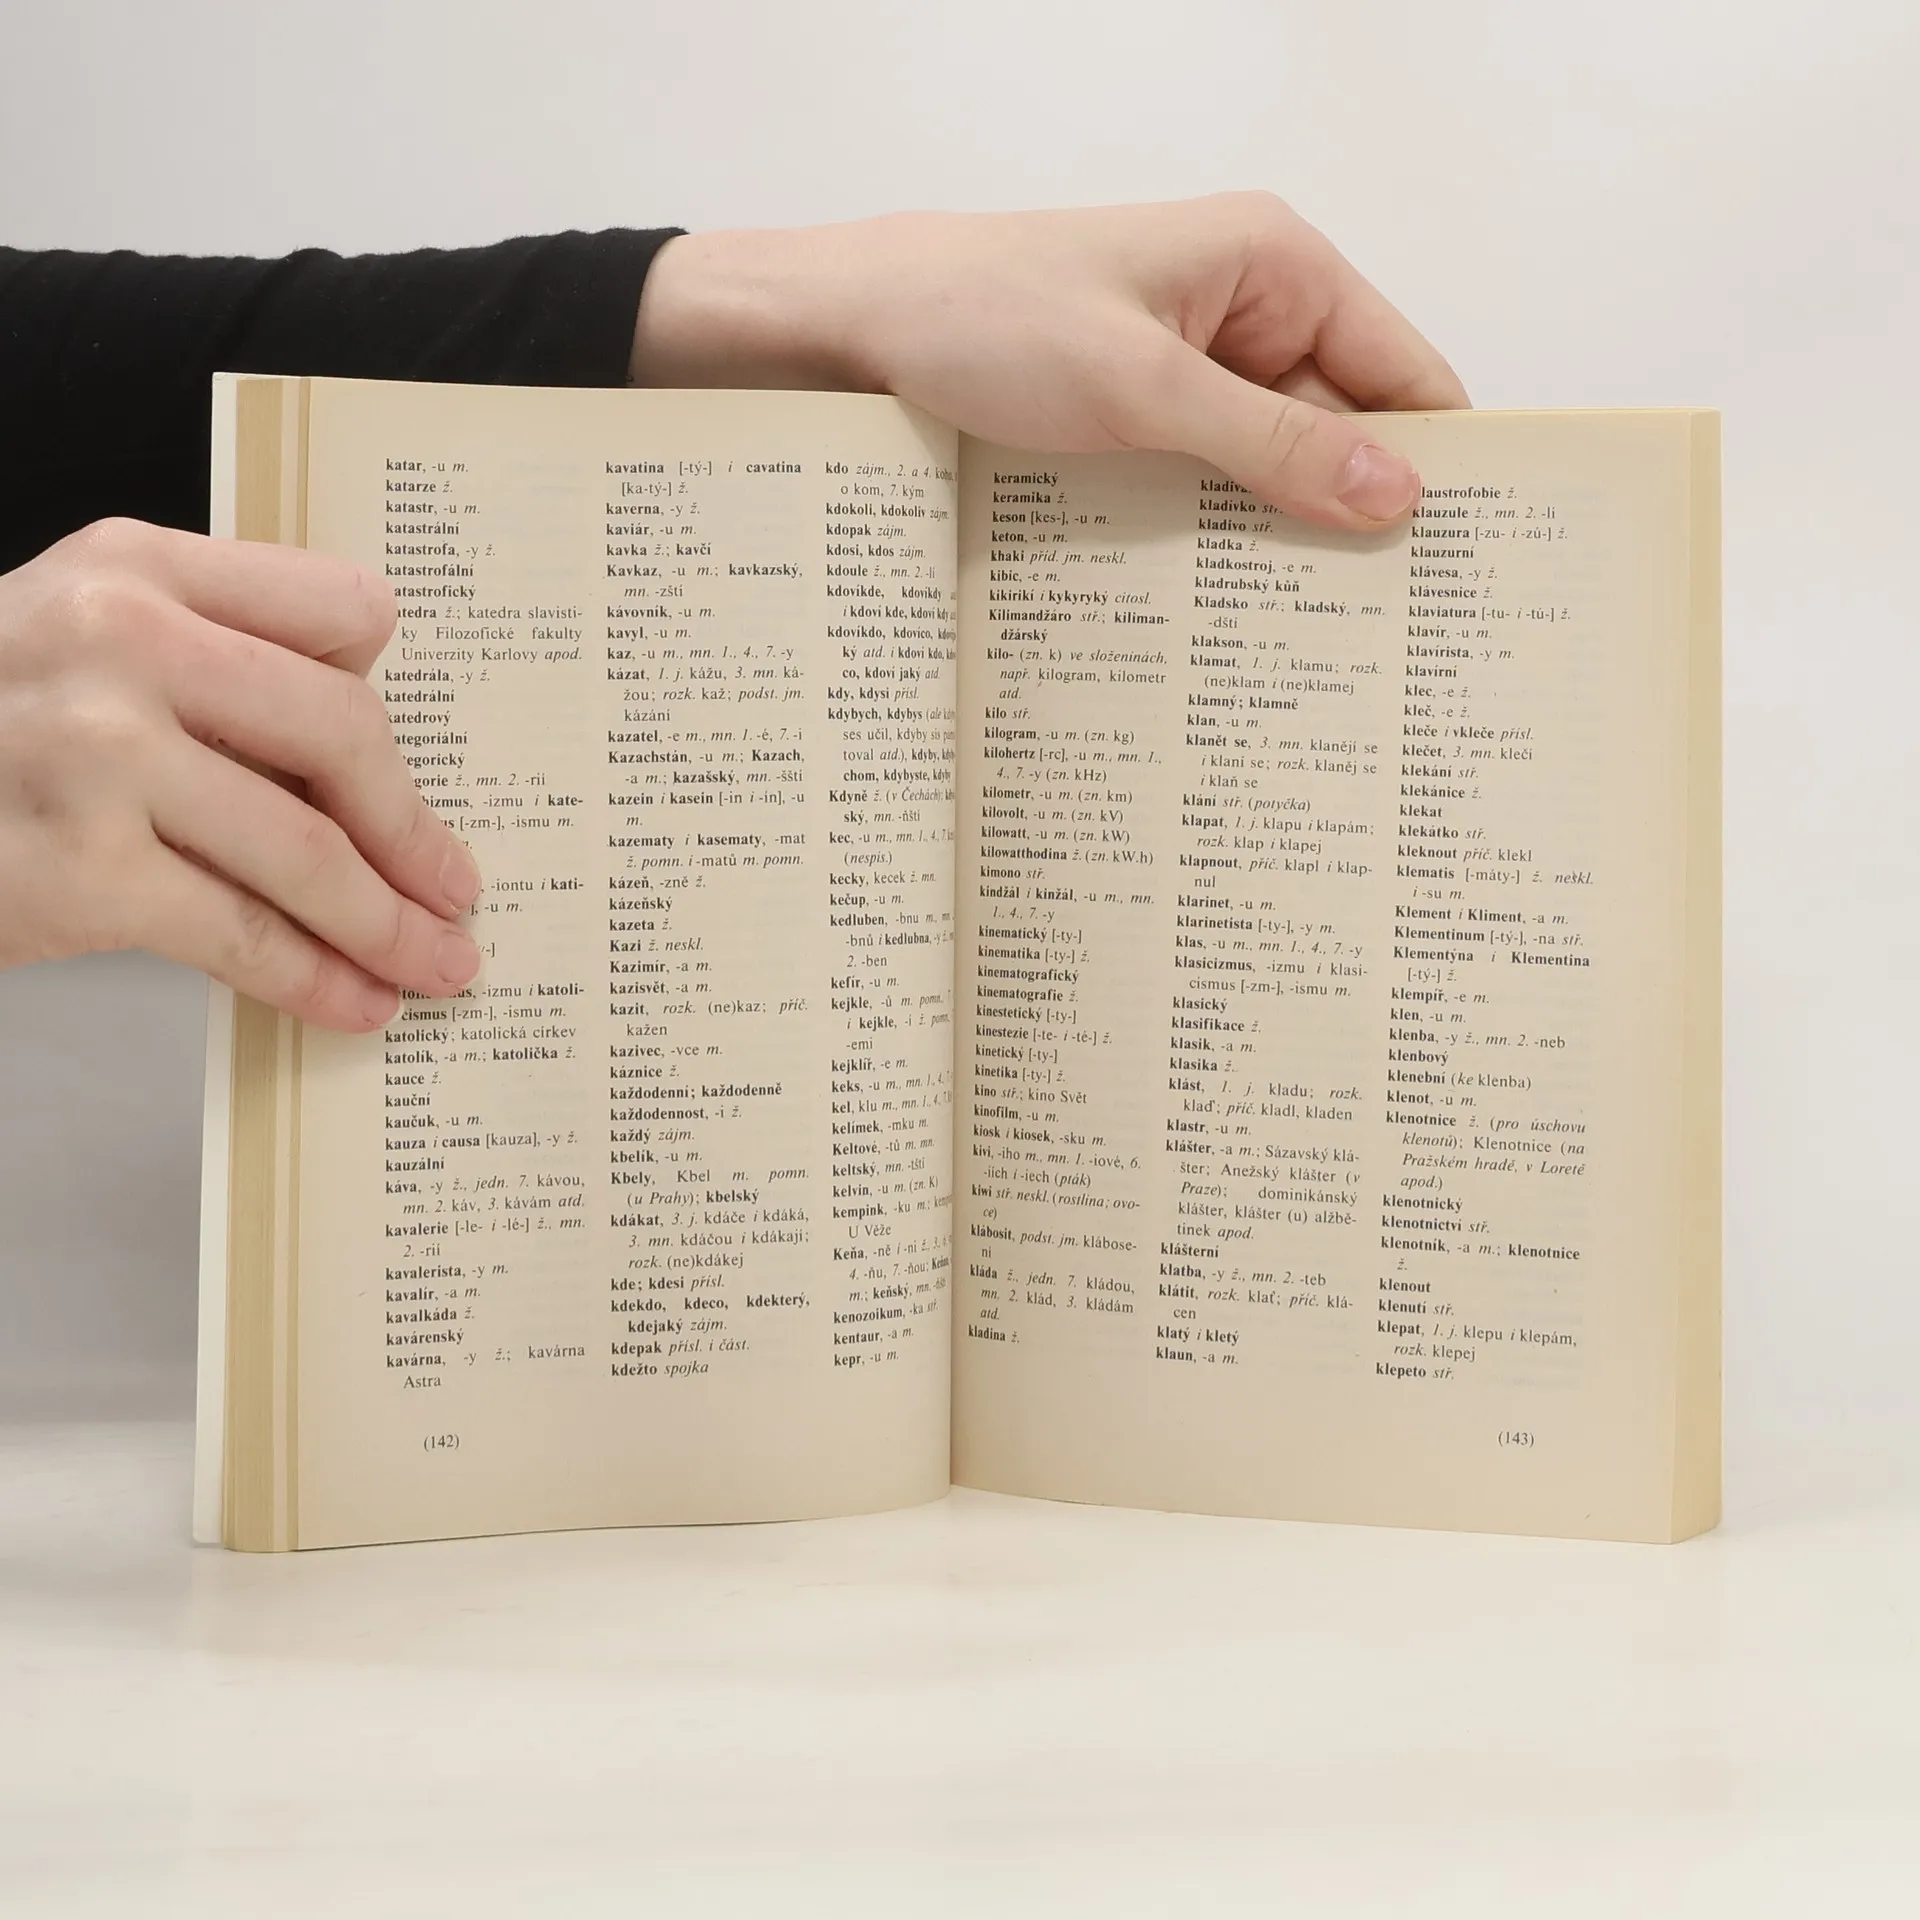 katar, -u m.
katarze ž.
katastr, -u m.
katastrální
katastrofa, -y ž.
katastrofální
atastrofický
atedra ž.; katedra slavisti-
ky Filozofické fakulty
Univerzity Karlovy apod.
katedrála, -y ž.
katedrální
katedrový
ategoriální
egorický
gorie ž., mn. 2. -rií
hizmus, -izmu i kate-
us [-zm-], -ismu m.
, -iontu i kati-
], -u m.
-izmu i katoli-
cismus [-zm-], -ismu m.
katolický; katolická církev
katolík, -a m.; katolička ž.
kauce ž.
kauční
kaučuk, -u m.
kauza i causa [kauza], -y ž.
kauzální
káva, -y ž., jedn. 7. kávou,
mn. 2. káv, 3. kávám atd.
kavalerie [-le- i -lé-] ž., mn.
2. -rií
kavalerista, -y m.
kavalír, -a m.
kavalkáda ž.
kavárenský
kavárna, -y ž.; kavárna
Astra
kavatina [-tý-] i cavatina
[ka-tý-] ž.
kaverna, -y ž.
kaviár, -u m.
kavka ž.; kavčí
Kavkaz, -u m.; kavkazský,
mn. -zští
kávovník, -u m.
kavyl, -u m.
kaz, -u m., mn. 1., 4., 7. -y
kázat, 1. j. kážu, 3. mn. ká-
žou; rozk. kaž; podst. jm.
kázání
kazatel, -e m., mn. 1. -é, 7. -i
Kazachstán, -u m.; Kazach,
-a m.; kazašský, mn. -šští
kazein i kasein [-in i -ín], -u
m.
kazematy i kasematy, -mat
ž. pomn. i -matů m. pomn.
kázeň, -zně ž.
kázeňský
kazeta ž.
Kazi ž. neskl.
Kazimír, -a m.
kazisvět, -a m.
kazit, rozk. (ne)kaz; příč.
kažen
kazivec, -vce m.
káznice ž.
každodenní; každodenně
každodennost, -i ž.
každý zájm.
kbelík, -u m.
Kbely, Kbel m. pomn.
(u Prahy); kbelský
kdákat, 3. j. kdáče i kdáká,
3. mn. kdáčou i kdákají;
rozk. (ne)kdákej
kde; kdesi přísl.
kdekdo, kdeco, kdekterý,
kdejaký zájm.
kdepak přísl. i část.
kdežto spojka
kdo zájm., 2. a 4. koho,
o kom, 7. kým
kdokoli, kdokoliv zájm.
kdopak zájm.
kdosi, kdos zájm.
kdoule ž., mn. 2. -lí
kdovíkde, kdovíkdy
i kdoví kde, kdoví kdy
kdovíkdo, kdovíco,
ký atd. i kdoví kdo,
co, kdoví jaký atd.
kdy, kdysi přísl.
kdybych, kdybys (ale
ses učil, kdyby sis
toval atd.), kdyby,
chom, kdybyste,
Kdyně ž. (v Čechách);
ský, mn. -ňští
kec, -u m., mn. 1., 4., 7.
(nespis.)
kecky, kecek ž. mn.
kečup, -u m.
kedluben, -bnu m., mn.
-bnů i kedlubna, -y ž.
2. -ben
kefír, -u m.
kejkle, -ů m. pomn.
i kejkle, -í ž. pomn.
-emi
kejklíř, -e m.
keks, -u m., mn. 1., 4.,
kel, klu m., mn. 1., 4.,
kelímek, -mku m.
Keltové, -tů m. mn.
keltský, mn. -tští
kelvin, -u m. (zn. K)
kempink, -ku m.;
U Věže
Keňa, -ně i -ni ž., 3.,
4. -ňu, 7. -ňou;
m.; keňský, mn. -ňští
kenozoikum, -ka stř.
kentaur, -a m.
kepr, -u m.
(142)
keramický
keramika ž.
keson [kes-], -u m.
keton, -u m.
khaki příd. jm. neskl.
kibic, -e m.
kikirikí i kykyryký citosl.
Kilimandžáro stř.; kiliman-
džárský
kilo- (zn. k) ve složeninách,
např. kilogram, kilometr
atd.
kilo stř.
kilogram, -u m. (zn. kg)
kilohertz [-rc], -u m., mn. 1.,
4., 7. -y (zn. kHz)
kilometr, -u m. (zn. km)
kilovolt, -u m. (zn. kV)
kilowatt, -u m. (zn. kW)
kilowatthodina ž. (zn. kW.h)
kimono stř.
kindžál i kinžál, -u m., mn.
1., 4., 7. -y
kinematický [-ty-]
kinematika [-ty-] ž.
kinematografický
kinematografie ž.
kinestetický [-ty-]
kinestezie [-te- i -té-] ž.
kinetický [-ty-]
kinetika [-ty-] ž.
kino stř.; kino Svět
kinofilm, -u m.
kiosk i kiosek, -sku m.
kivi, -iho m., mn. 1. -iové, 6.
-iích i -iech (pták)
kiwi stř. neskl. (rostlina; ovo-
ce)
klábosit, podst. jm. klábose-
ní
kláda ž., jedn. 7. kládou,
mn. 2. klád, 3. kládám
atd.
kladina ž.
kladiv
kladívko stř.
kladivo stř.
kladka ž.
kladkostroj, -e m.
kladrubský kůň
Kladsko stř.; kladský, mn.
-dští
klakson, -u m.
klamat, 1. j. klamu; rozk.
(ne)klam i (ne)klamej
klamný; klamně
klan, -u m.
klanět se, 3. mn. klanějí se
i klaní se; rozk. klaněj se
i klaň se
klání stř. (potyčka)
klapat, 1. j. klapu i klapám;
rozk. klap i klapej
klapnout, příč. klapl i klap-
nul
klarinet, -u m.
klarinetista [-ty-], -y m.
klas, -u m., mn. 1., 4., 7. -y
klasicizmus, -izmu i klasi-
cismus [-zm-], -ismu m.
klasický
klasifikace ž.
klasik, -a m.
klasika ž.
klást, 1. j. kladu; rozk.
klaď; příč. kladl, kladen
klastr, -u m.
klášter, -a m.; Sázavský klá-
šter; Anežský klášter (v
Praze); dominikánský
klášter, klášter (u) alžbě-
tinek apod.
klášterní
klatba, -y ž., mn. 2. -teb
klátit, rozk. klať; příč. klá-
cen
klatý i kletý
klaun, -a m.
laustrofobie ž.
klauzule ž., mn. 2. -lí
klauzura [-zu- i -zú-] ž.
klauzurní
klávesa, -y ž.
klávesnice ž.
klaviatura [-tu- i -tú-] ž.
klavír, -u m.
klavírista, -y m.
klavírní
klec, -e ž.
kleč, -e ž.
kleče i vkleče přísl.
klečet, 3. mn. klečí
klekání stř.
klekánice ž.
klekat
klekátko stř.
kleknout příč. klekl
klematis [-máty-] ž. neskl.
i -su m.
Klement i Kliment, -a m.
Klementinum [-tý-], -na stř.
Klementýna i Klementina
[-tý-] ž.
klempíř, -e m.
klen, -u m.
klenba, -y ž., mn. 2. -neb
klenbový
klenební (ke klenba)
klenot, -u m.
klenotnice ž. (pro úschovu
klenotů); Klenotnice (na
Pražském hradě, v Loretě
apod.)
klenotnický
klenotnictví stř.
klenotník, -a m.; klenotnice
ž.
klenout
klenutí stř.
klepat, 1. j. klepu i klepám,
rozk. klepej
klepeto stř.
(143)